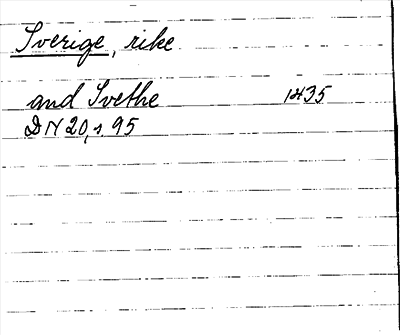 Sverige, rike
and Svethe 1435
DN 20, s. 95